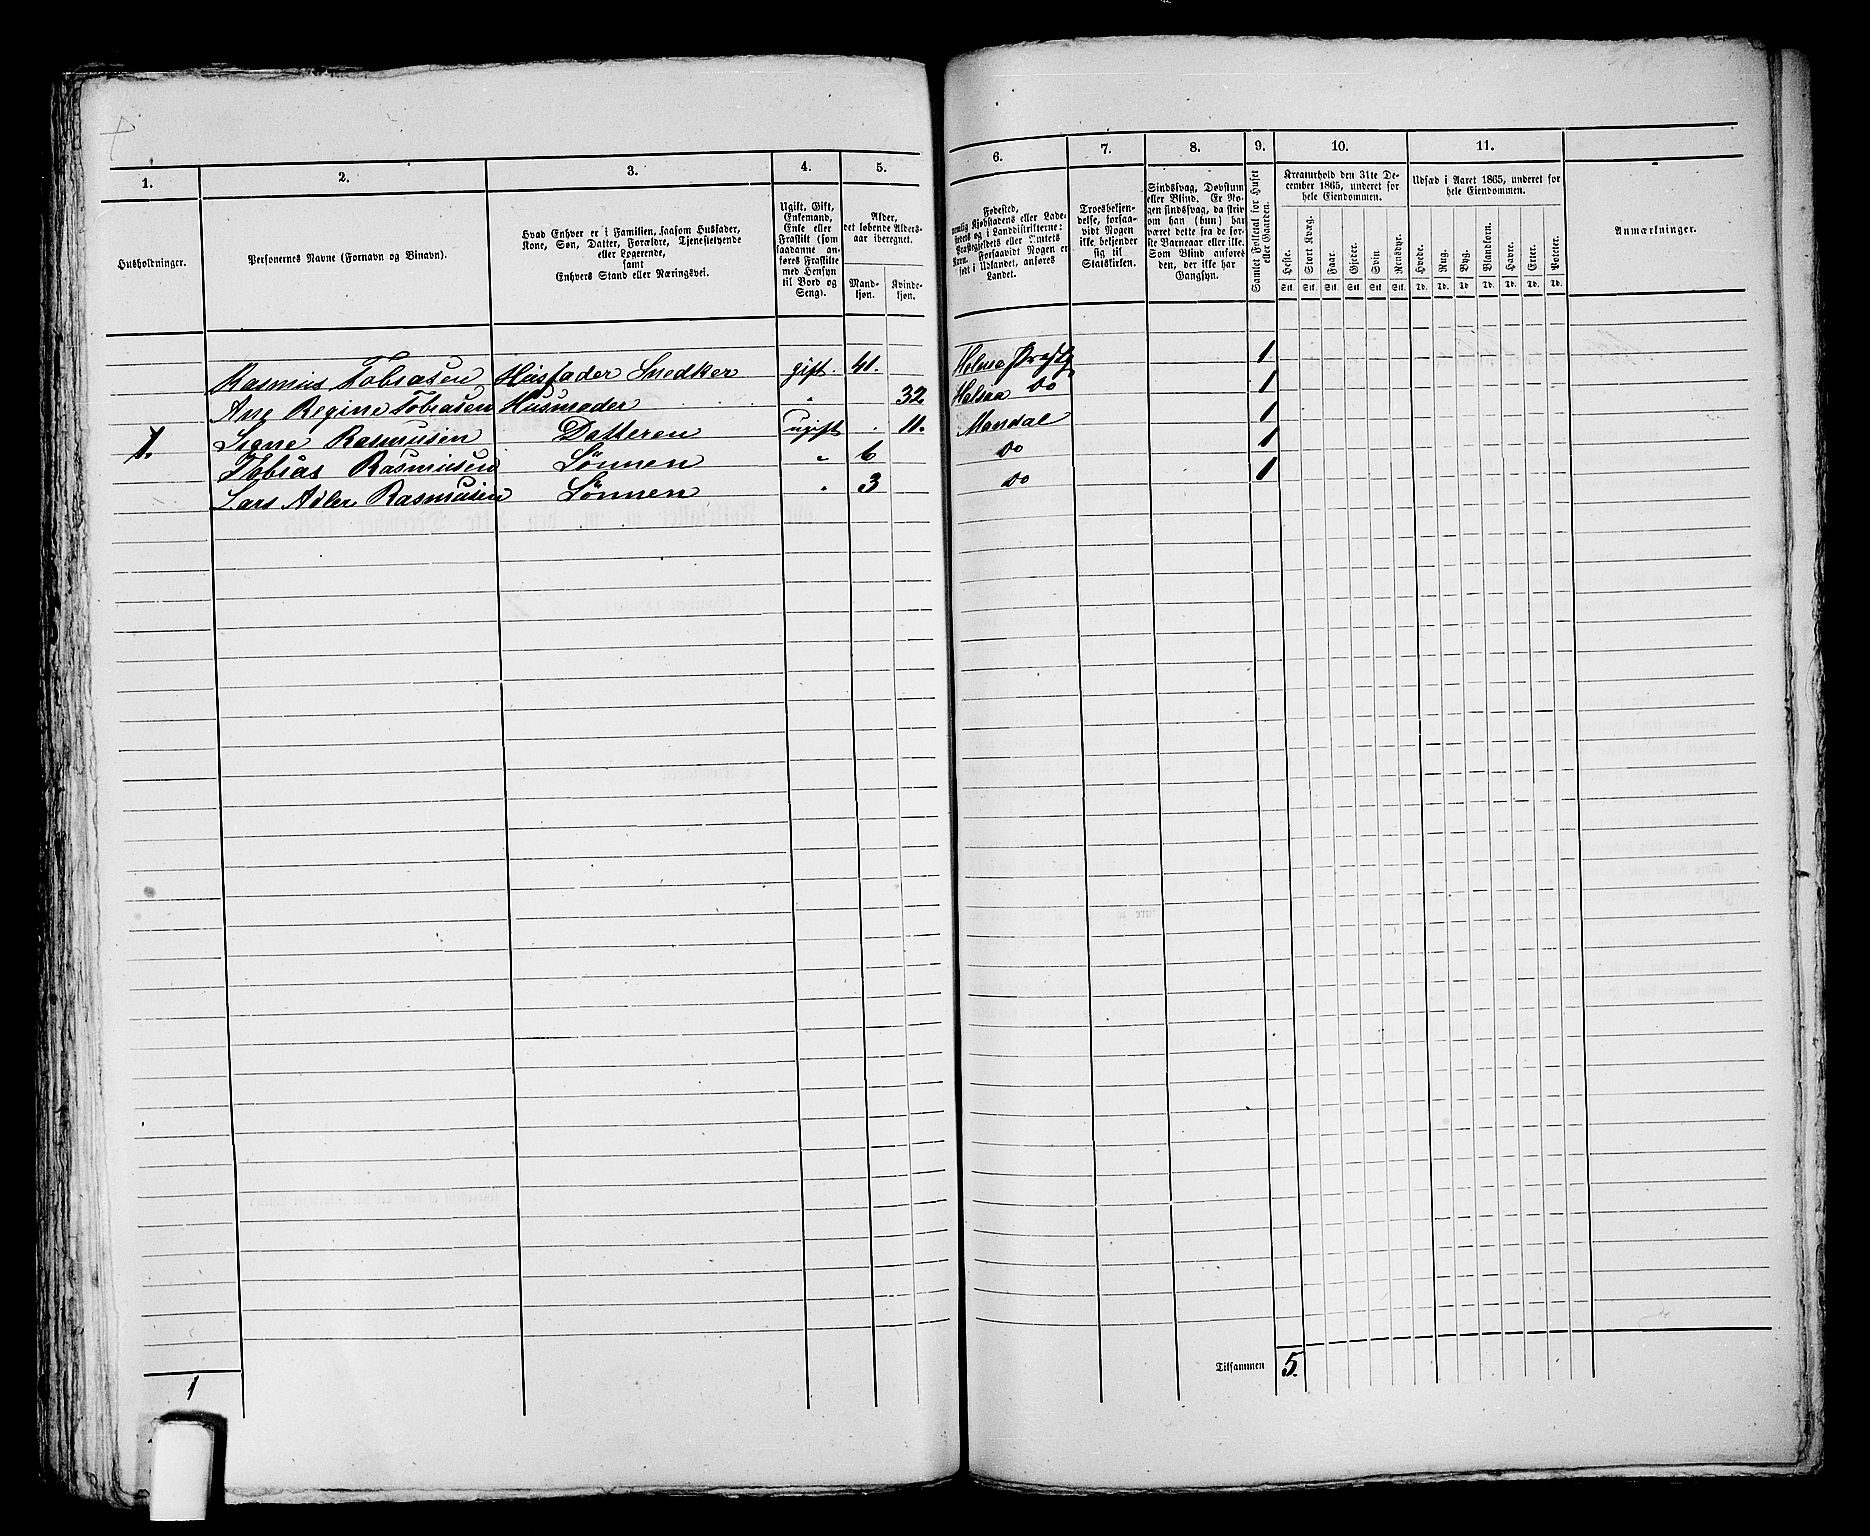 1. 2. 3. 4. 5. 6. 7. 8. 9. 10. 11.
Husholdninger.
Personernes Navne (Fornavn og Binavn).
Hvad Enhver er i Familien, saasom Husfader,
Kone, Søn, Datter, Forældre, Tjenestetyende
eller Logerende,
samt
Enhvers Stand eller Næringsvei.
Ugift, Gift,
Enkemand,
Enke eller
Fraskilt (som
saadanne an-
føres Fraskilte
med Hensyn
til Bord og
Seng).
Alder,
det løbende Alders-
aar iberegnet.
Mand-
kjøn.
Kvinde-
kjøn.
Fødested,
nemlig Kjøbstadens eller Lade-
stedets og i Landdistrikterne:
Præstegjeldets eller Amtets
Navn. Forsaavidt Nogen er
født i Udlandet, anføres
Landet.
Troesbekjen-
delse, forsaa-
vidt Nogen
ikke bekjender
sig til
Statskirken.
Sindssvag, Døvstum
eller Blind. Er No-
gen sindssvag, da skriv
om han (hun) har
været dette fra de før-
ste Barneaar eller ikke.
Som Blind anføres
den, der ikke har
Gangsyn.
Samlet Folketal for Huset
eller Gaarden.
Kreaturhold den 31te De-
cember 1865, underet for
hele Eiendommen.
Heste. Stort Kvæg. Faar. Gjeter. Svin Rensdyr.
Stk. Stk. Stk. Stk. Stk. Stk.
Udsæd i Aaret 1865, underet for
hele Eiendommen.
Hvede. Rug. Byg. Blandkorn. Havre. Erter. Poteter.
Td. Td. Td. Td. Td. Td. Td.
Anmærkninger.
Rasmus Tobiasen Husfader Snedker gift. 41. 1
Ane Regine Tobiasen Husmoder " 32 Halsaa do 1
1. Signe Rasmusen Datteren ugift 11. Mandal 1
Tobias Rasmusen Sønnen " 6 do 1
Lars Adler Rasmusen Sønnen " 3 do 1
Tilsammen 5.
1